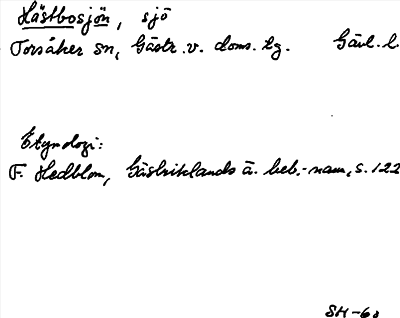 Hästbosjön, sjö
Torsåker sn, Gästr. v. doms. tg. Gävl. l.
Etymologi:
F. Hedblom, Gästriklands ä. beb.-namn, s. 122